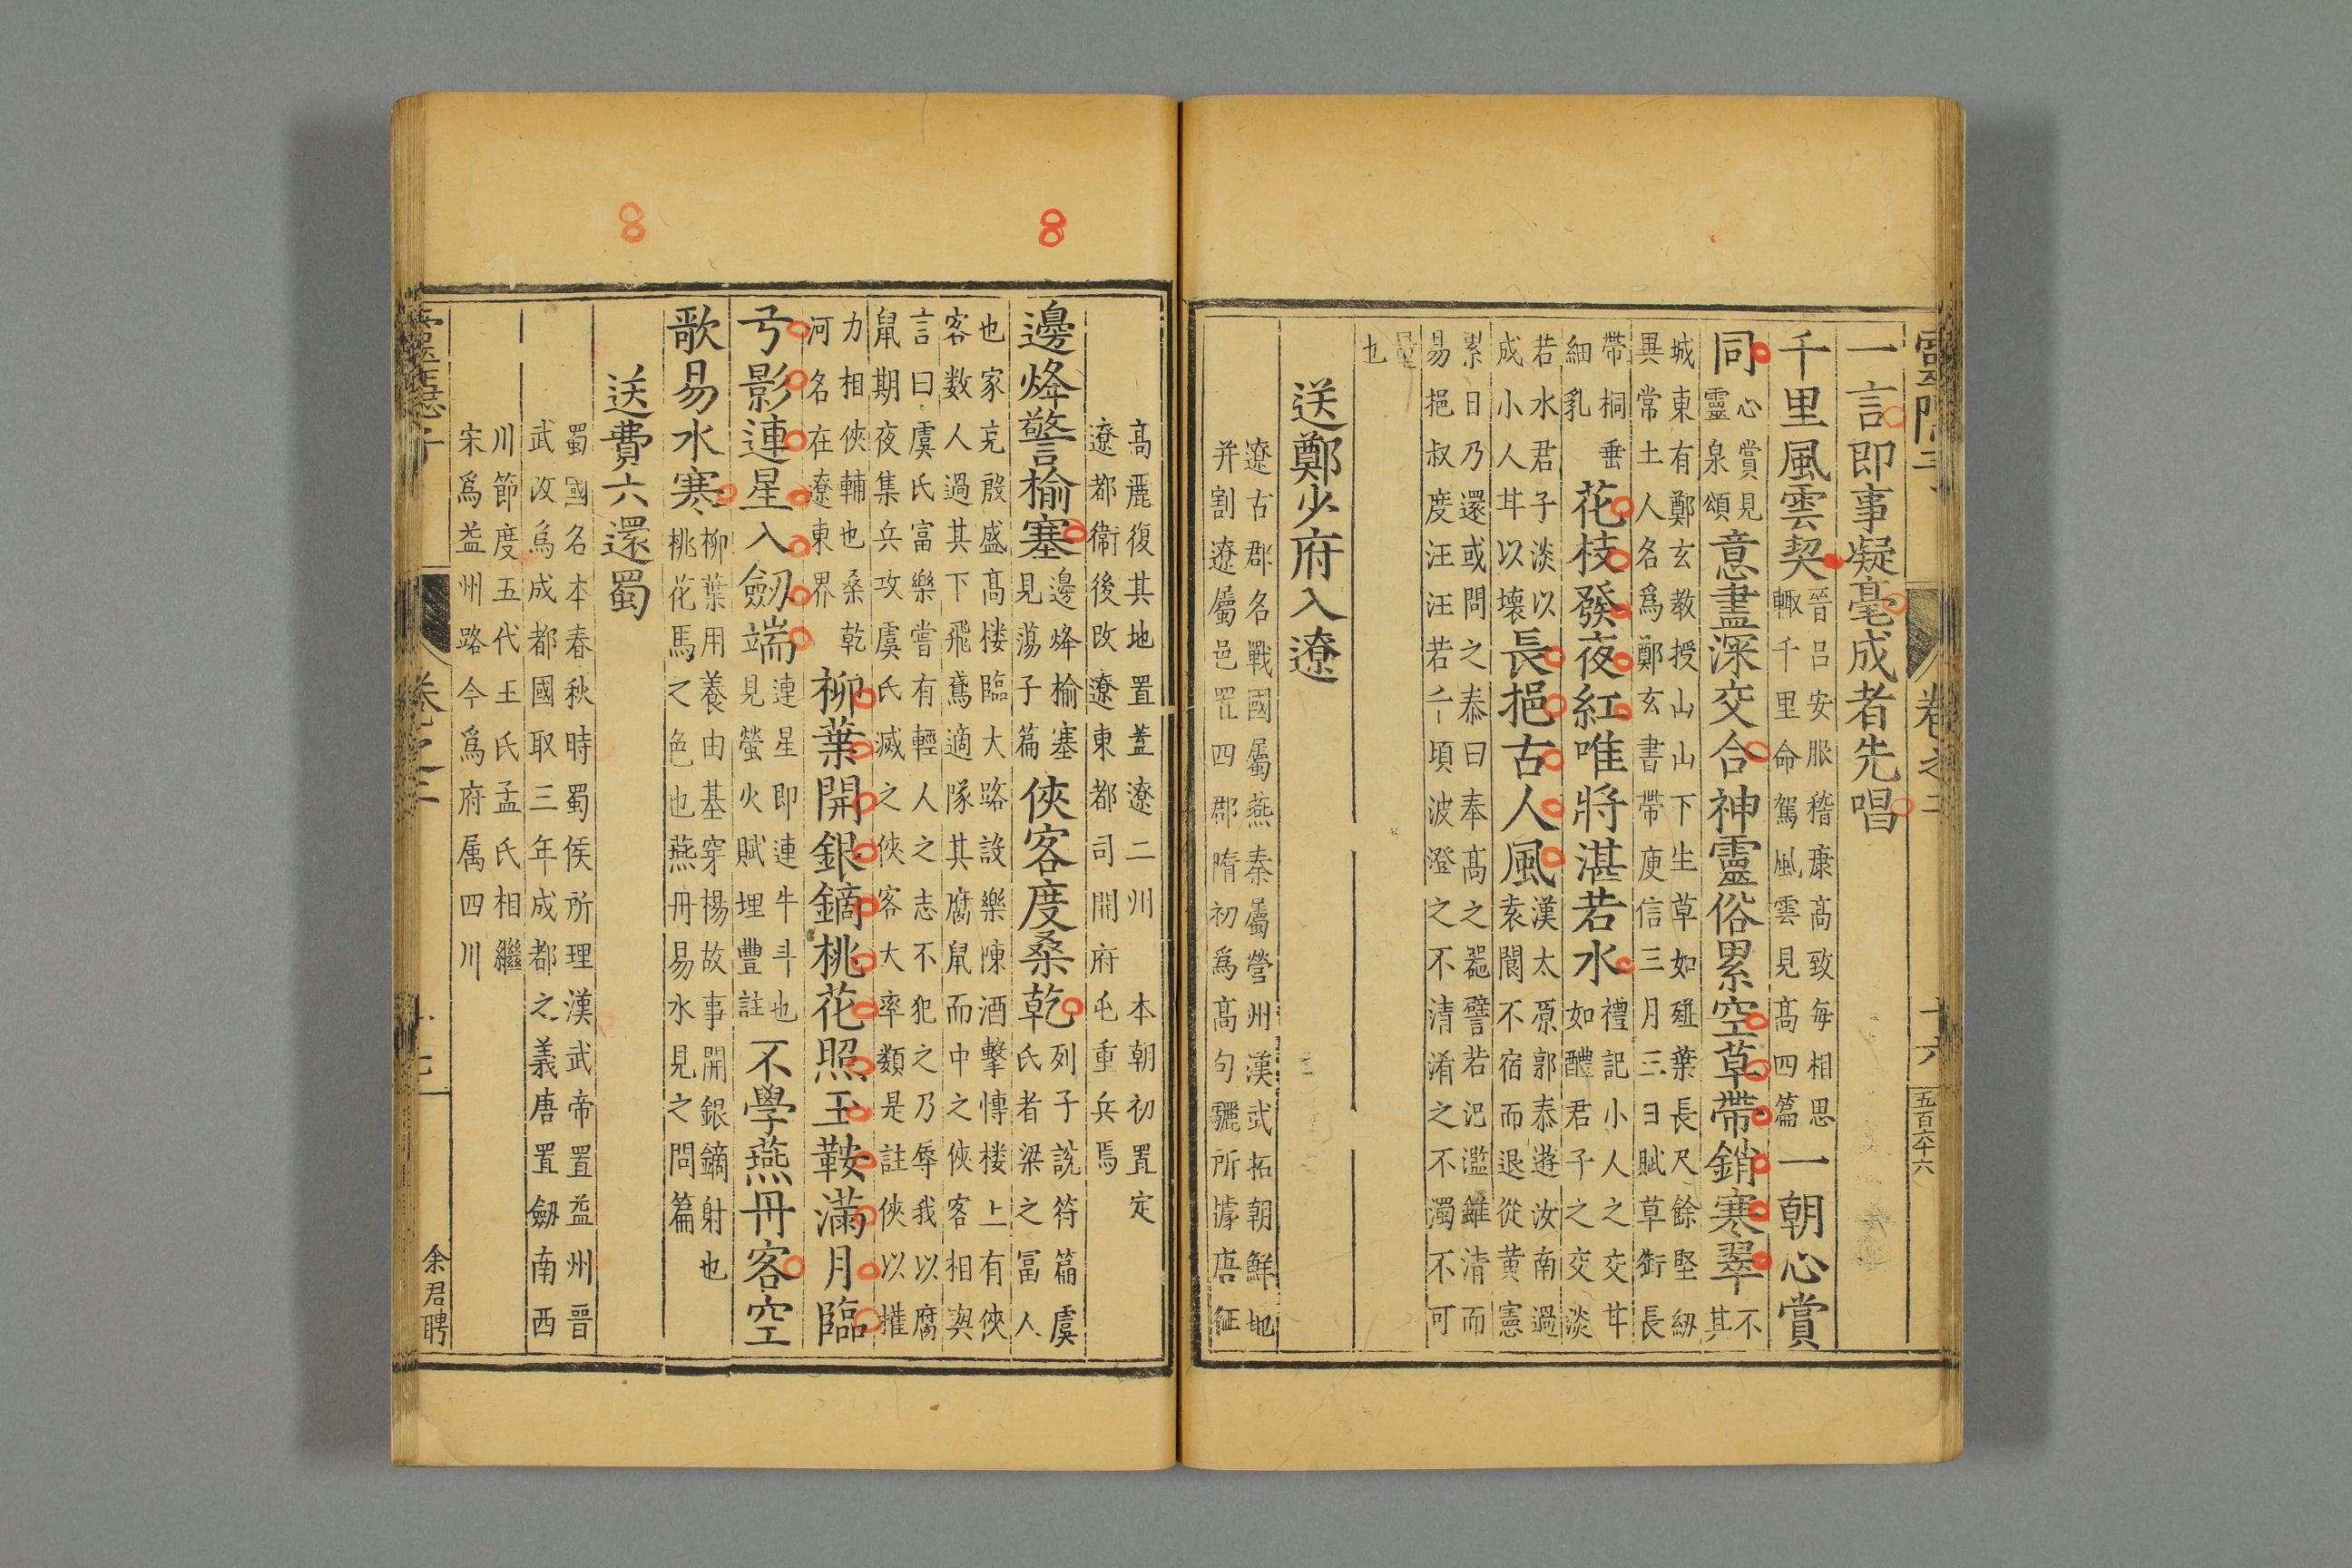 一言即事凝毫成者先唱
千里風雲契晉呂安服稽康高致每相思輙千里命駕風雲見高四篇一朝心賞
同心賞見靈泉頌意盡深交合神靈俗累空草帶銷寒翠不其
城東有鄭玄教授山山下生草如薤葉長尺餘堅紉異常土人名爲鄭玄書帶庾信三月三日賦草銜長
帶桐垂細乳花枝發夜紅唯將湛若水禮記小人之交甘如醴君子之交淡
若水君子淡以成小人甘以壞長挹古人風漢太原郭泰遊汝南過袁閬不宿而退從黄憲
累日乃還或問之泰曰奉高之噐譬若汜濫雖清而易挹叔度汪汪若千頃波澄之不清淆之不濁不可
量也
送鄭少府入遼
遼古郡名戰國屬燕秦屬營州漢武拓朝鮮地并割遼屬邑置四郡隋初爲高句驪所據唐征
高麗復其地置蓋遼二州本朝初置定遼都衞後改遼東都司開府屯重兵焉
邊烽警榆塞邊烽榆塞見蕩子篇俠客度桑乾列子說符篇虞氏者梁之富人
也家充殷盛高楼臨大路設樂陳酒擊愽楼上有俠客数人過其下飛鳶適隊其腐鼠而中之俠客相與
言曰虞氏富樂嘗有輕人之志不犯之乃辱我以腐鼠期夜集兵攻虞氏滅之俠客大率類是註俠以權
力相俠輔也桑乾河名在遼東界柳葉開銀鏑桃花照玉鞍滿月臨
弓影連星入劒端連星即連牛斗也見螢火賦埋豐註不學燕丹客空
歌易水寒柳葉用養由基穿楊故事開銀鏑射也桃花馬之色也燕丹易水見之問篇
送費六還蜀
蜀國名本春秋時蜀侯所理漢武帝置益州晉武改爲成都國取三年成都之義唐置劒南西
川節度五代王氏孟氏相繼宋爲益州路今爲府属四川
卷之二
十六
五百六十六
余君聘